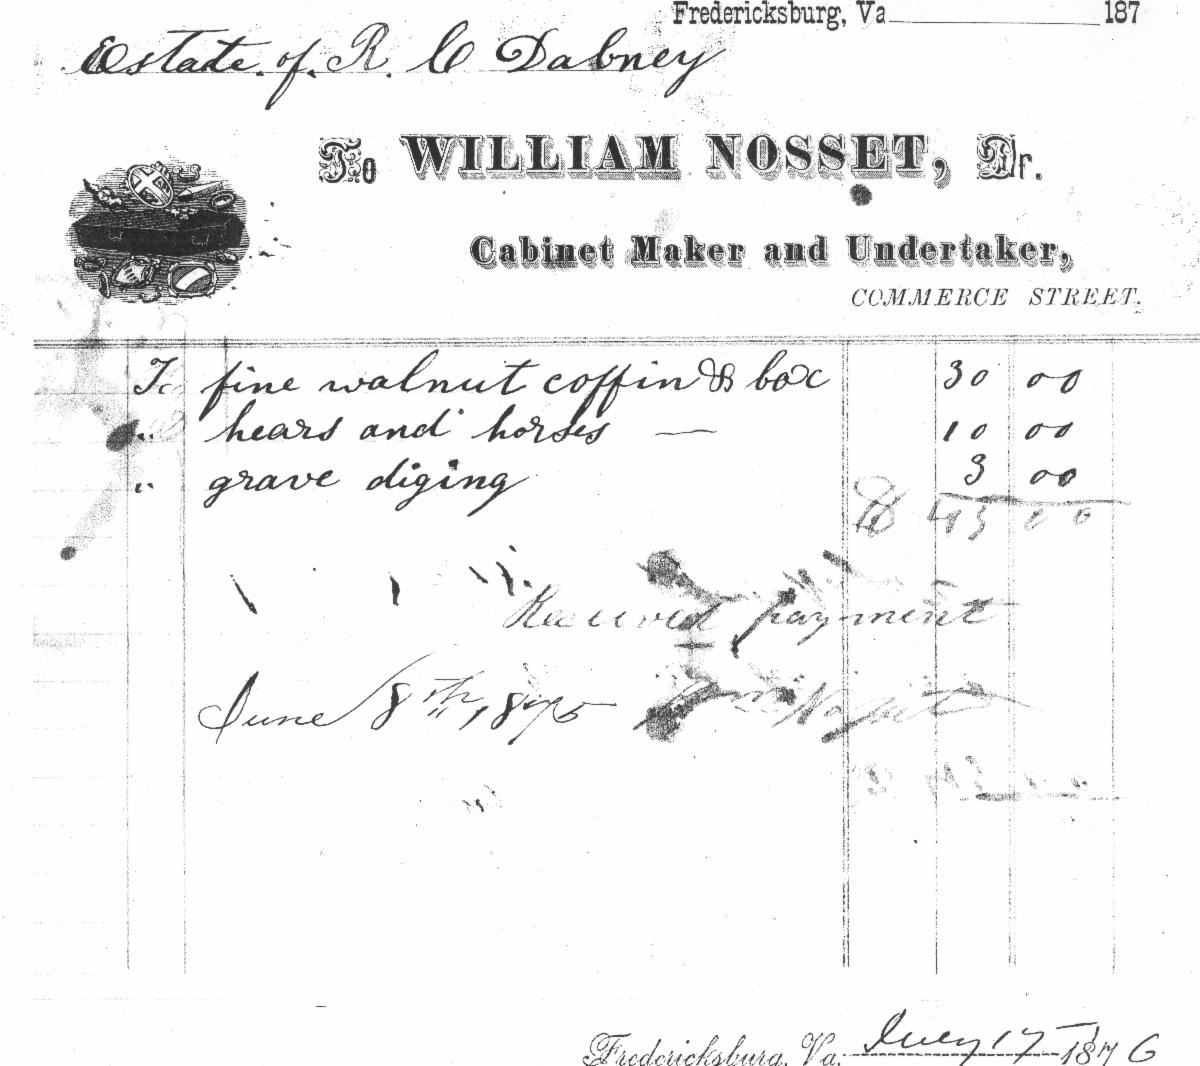 Fredericksburg, Va 187
Estate of R. C Dabney
To WILLIAM NOSSET, Dr.
Cabinet Maker and Undertaker,
COMMERCE STREET.
To fine walnut coffin & box 30 00
" hears and horses — 10 00
" grave diging 3 00
$ 43 00
Received payment
June 8th, 1875 Wm Nosset
Fredericksburg, Va. July 17 1876